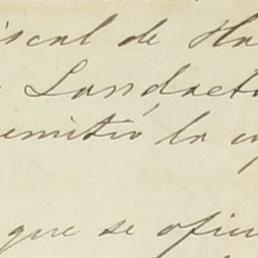 iscal de Ha
Landaet
emitió la
que se ofici